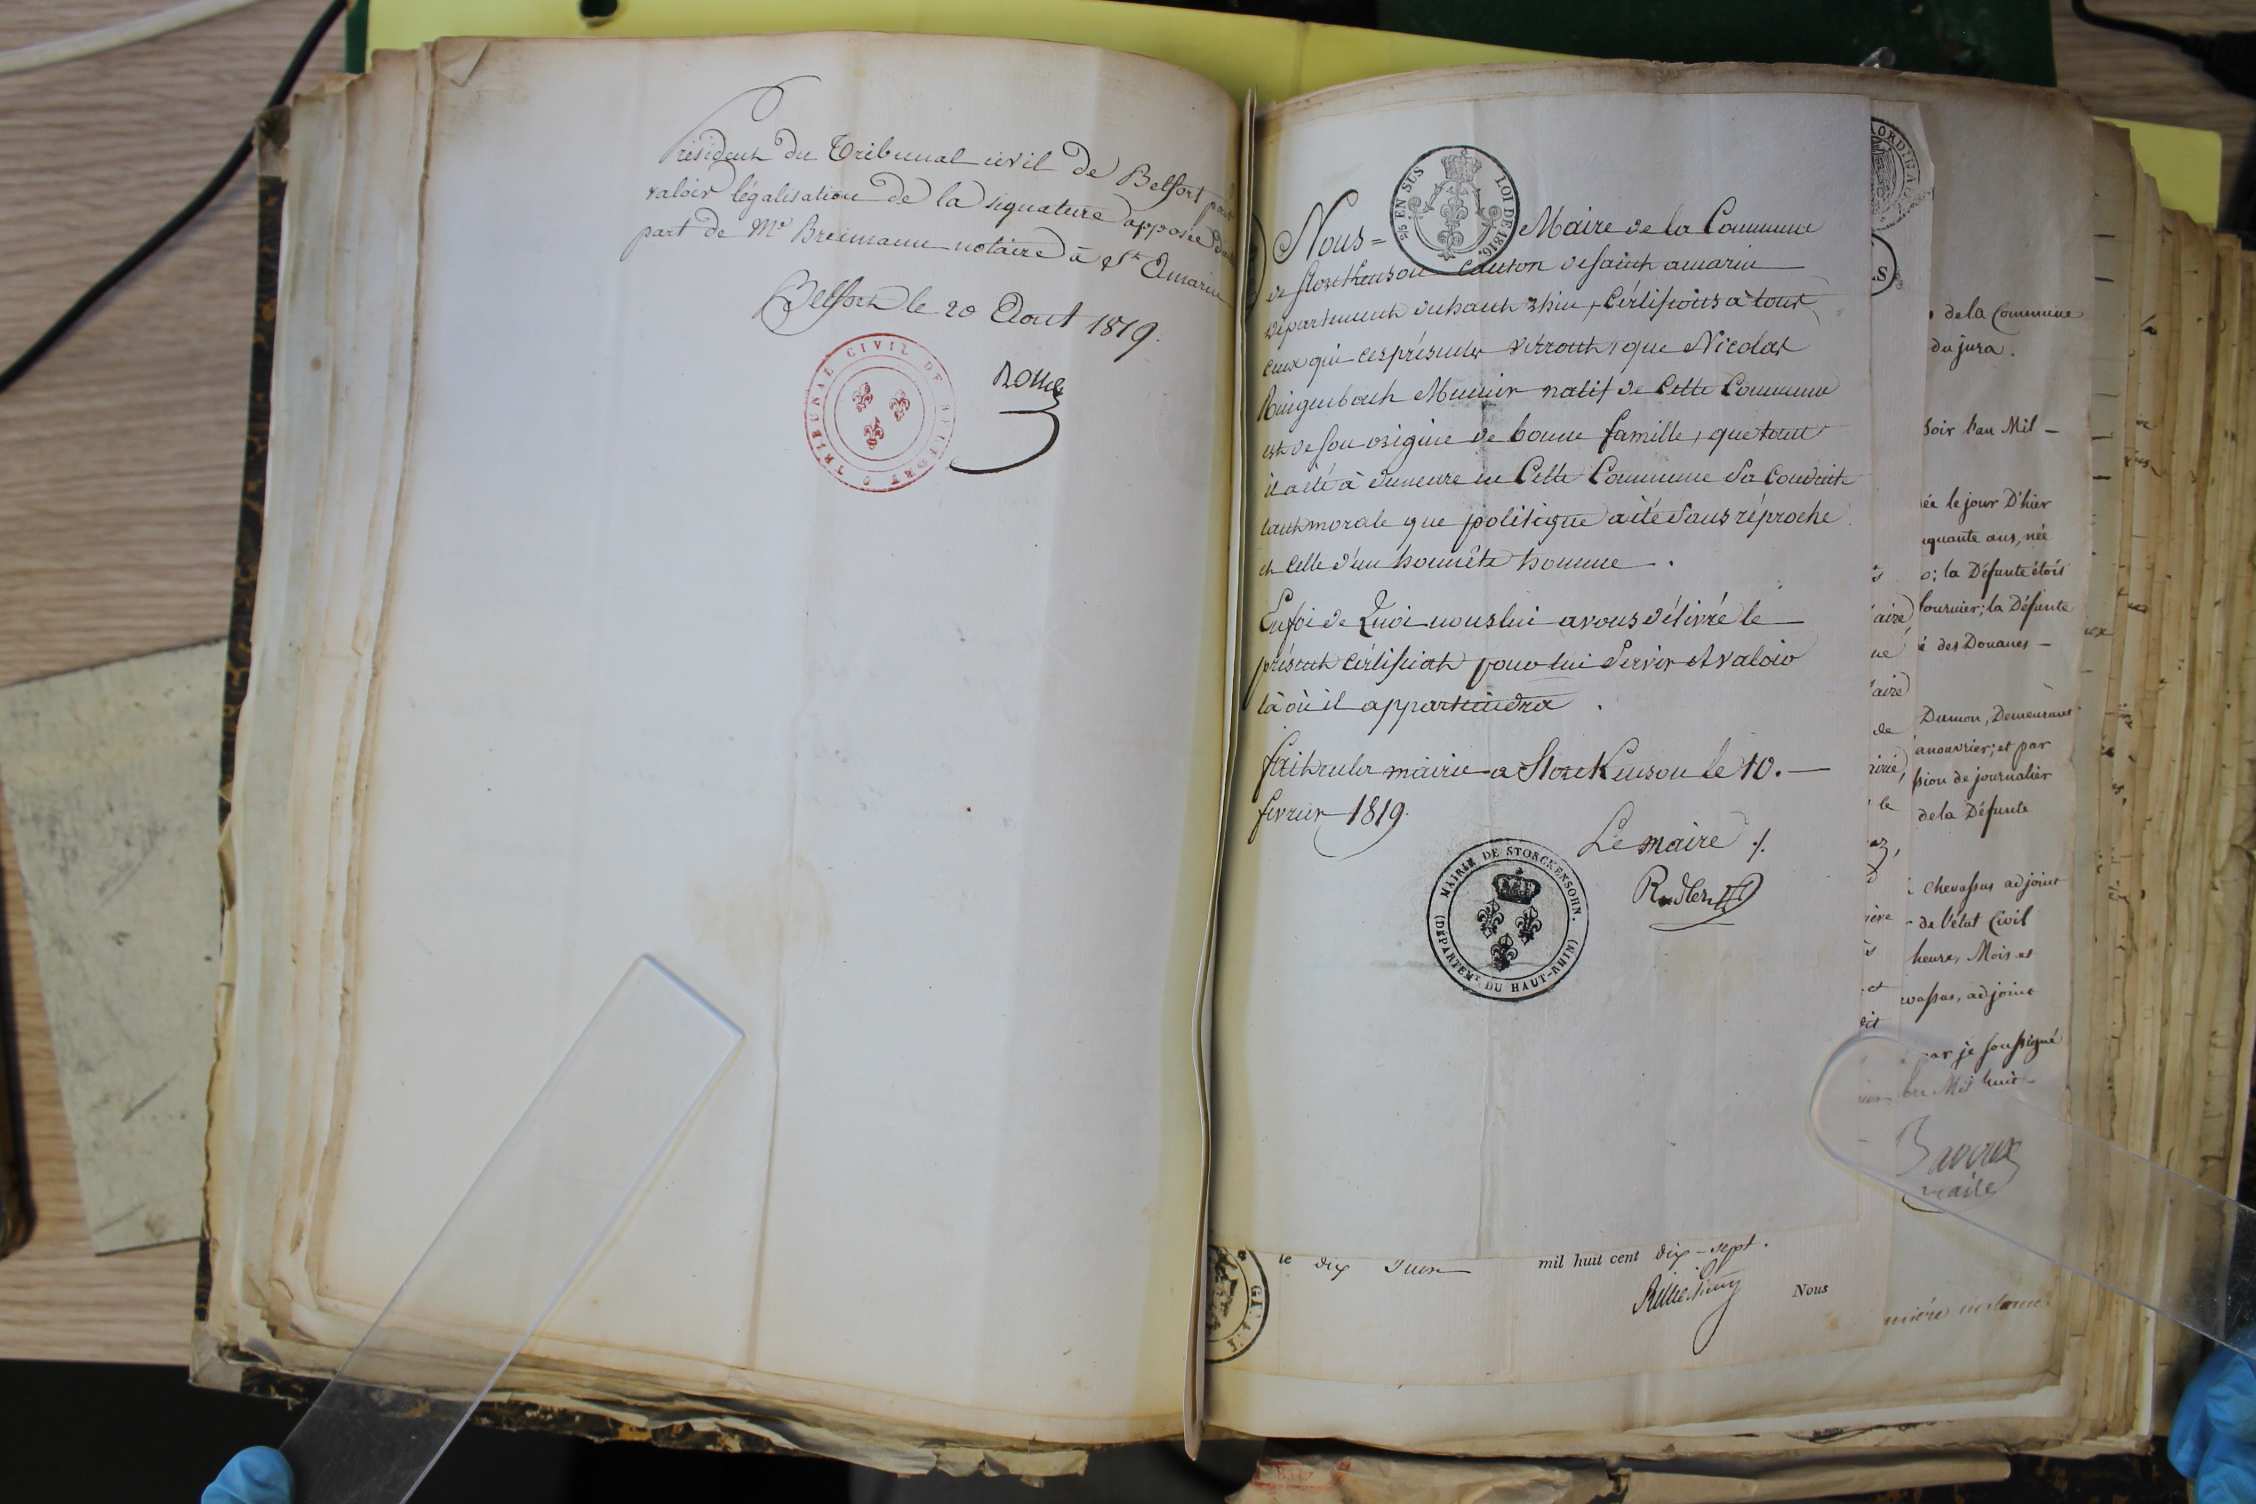 Président du Tribunal civil de Belfort pour
valoir légalisation de la signature apposée d'autre
part de Me notaire à St Amarin
Belfort le 20 Aout 1819.
TRIBUNAL CIVIL DE BELFORT
25 EN SUS LOI DE 1816.
Nous = Maire de la Commune
de Storckenson Canton de saint amarin
département du haut rhin, Cértifions à tous
ceux qui ces présentes verront, que Nicolas
Ringenbach Meunier natif de Cette Commune
est de son origine de bonne famille, que tant
il a été à demeure en Cette Commune Sa Conduite
tant morale que politique a été Sans réproche
et Celle d'un honnête homme.
En foi de Quoi nous lui avons délivré le
présent Cértificat pour lui Servir et valoir
là où il appartiendra.
fait en la mairie a Storckenson le 10.
fevrier 1819.
Le maire
MAIRIE DE STORCKENSOHN.
(DÉPARTEMt. DU HAUT-RHIN)
le dix Juin mil huit cent dix-sept.
Nous
de la Commune
du jura.
soir l'an Mil
ée le jour D'hier
nquante ans, née
o; la Défunte étoit
fournier; la Défunte
é des Douanes
Dumon, Demeurant
anouvrier; et par
ssion de journalier
de la Défunte
chevassus adjoint
de l'état Civil
heure, Mois et
vassus, adjoint
par je soussigné
Mil huit
Bavoux
maire